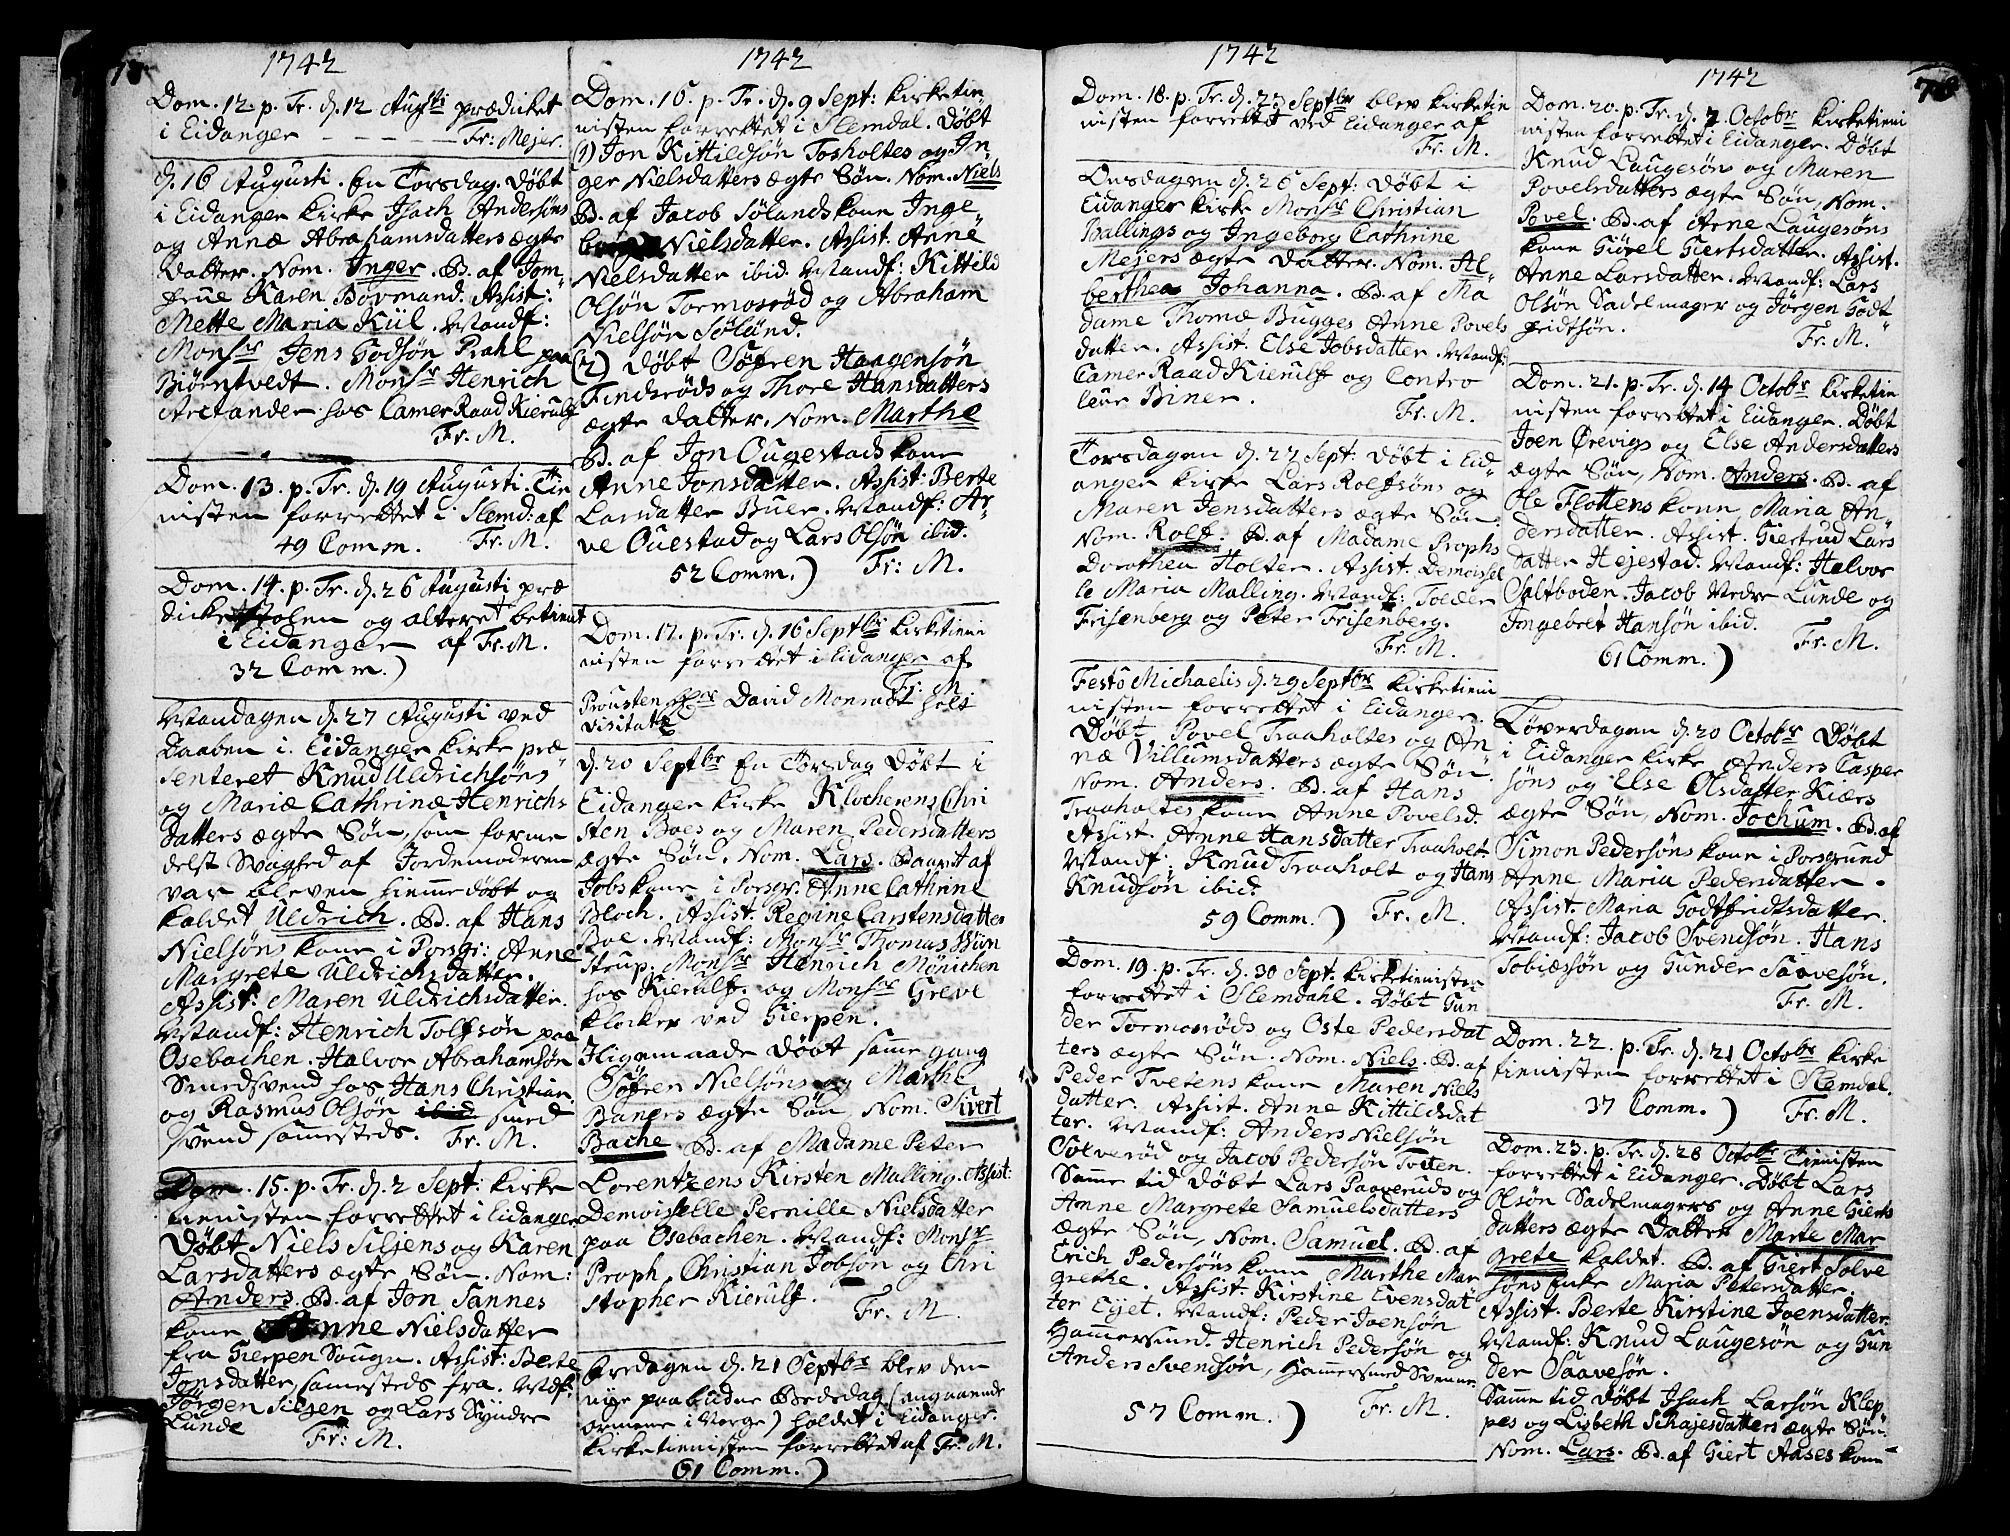 1742
Dom. 12. p. Tr. d. 12 Augti prædicket
i Eidanger - - - Fr: Mejer.
d. 16 Augusti. En Torsdag. Døbt
i Eidanger Kirke Isach Andersøns
og Annæ Abrahamsdatters ægte
Datter. Nom. Inger. B. af Jom
frue Karen Bovmand. Assist:
Mette Maria Kül. Vstandf:
Monsr Jens Godsøn Prahl paa
Biørntvedt. Monsr Henrich
Arctander hos CamerRaad Kierulf
Fr. M.
Dom. 13. p. Tr. d. 19 Augusti. Tie
nisten forrettet i Slemd: af
49 Comm. Fr. M.
Dom. 14. p. Tr. d. 26 Augusti præ
dickestolen og alteret betient
i Eidanger af Fr. M.
32 Comm.)
Mandagen d. 27 Augusti ved
Daaben i Eidanger Kirke præ
senteret Knud Uldrichsøns
og Mariæ Cathrinæ Henrichs
datters ægte Søn, som forme
delst Svaghed af Jordemoderen
var bleven hiemmedøbt og
kaldet Uldrich. B. af Hans
Nielsøns kone i Porsgr: Anne
Margrete Uldrichsdatter.
Assist: Maren Uldrichsdatter.
Vstandf: Henrich Tolfsøn paa
Osebachen. Halvor Abrahamsøn
Smedsvend hos Hans Christian.
og Rasmus Olsøn ibid smed
svend sammesteds. Fr. M.
Dom. 15. p. Tr. d. 2 Sept: Kirke
tienisten forrettet i Eidanger
Døbt Niels Siljens og Karen
Larsdatters ægte Søn. Nom:
Anders. B. af Jon Sannes
kone Anne Nielsdatter
fra Gierpen Sougn. Assist: Berte
Jonsdatter, samesteds fra. Vstdf:
Jørgen Siljen og Lars Syndre
Lunde Fr: M.
1742
Dom. 16. p. Tr. d. 9 Sept: Kirketie
nisten forrettet i Slemdal. Døbt
(1) Jon Kittildsøn Tosholtes og In
ger Nielsdatters ægte Søn. Nom. Niels
B. af Jacob Sølands kone Inge
borg Nielsdatter. Assist. Anne
Nielsdatter ibid. Vstandf: Kittild
Olsøn Tormosrød og Abraham
Nielsøn Sølund.
(2) Døbt Søfren Haagensøn
Findsrøds og Thore Hansdatters
ægte Datter. Nom. Marthe
B. af Jon Ougestads kone
Anne Jonsdatter. Assist: Berte
Larsdatter Buer. Vstandf: Ar
ve Ouestad og Lars Olsøn ibid.
52 Comm.) Fr: M.
Dom. 17. p. Tr. d. 16 Septbr Kirketieni
nisten forrettet i Eidanger af
Fr. M
Prousten Hr David Monrad hols
Visitatz
d. 20 Septbr En Torsdag Døbt i
Eidanger Kirke Klocherens Chri
sten Boes og Maren Pedersdatters
ægte Søn. Nom. Lars. Baaret af
Jobs kone i Porsgr: Anne Cathrine
Bloch. Assist. Regine Carstensdatter
Boe. Vstandf: Monsr Thomas Win
strup. Monsr Henrich Mönichen
hos Kierulf. og Monsr Greve
Klocker ved Gierpen.
Iligemaade Døbt samme gang
Søfren Nielsøns og Marthe
Baners ægte Søn, Nom. Sivert
Bache B. af Madame Peter
Lorentzens Kirsten Malling. Assist:
Demoiselle Pernille Nielsdatter
paa Osebachen. Vstandf: Monsr
Proph. Christian Jobsøn og Chri
stopher Kierulf.
Fr. M.
Fredagen d. 21 Septbr blev den
nye paabudne Bededag (angaaende
ormene i Norge) holdet i Eidanger.
Kirketienisten forrettet af Fr. M.
61 Comm.)
1742
Dom. 18. p. Tr. d. 23 Septbr blev Kirketie
nisten forrettet ved Eidanger af
Fr. M.
Onsdagen d. 26 Sept: Døbt i
Eidanger Kirke Monsr Christian
Ballings og Ingeborg Cathrine
Mejers ægte Datter. Nom. Al
berthea Johanna. B. af Ma
dame Thomæ Bugges Anne Povels
datter. Assist. Else Jobsdatter. Vstandf:
Camer Raad Kierulf og Contro
leur Biner.
Fr. M.
Torsdagen d. 27 Sept: Døbt i Eid
anger Kirke Lars Rolfsøns og
Maren Jensdatters ægte Søn
Nom. Rolf. B. af Madame Prophs
Dorothea Holter. Assist. Demoisel
le Maria Malling. Vstandf: Tolder
Frisenberg og Peter Frisenberg.
Fr. M.
Festo Michaelis d. 29 Septbr Kirketieni
nisten forrettet i Eidanger.
Døbt Povel Traaholtes og An
næ Villumsdatters ægte Søn.
Nom. Anders. B. af Hans
Traaholtes kone Anne Povelsd.
Assist. Anne Hansdatter Traaholt.
Vstandf: Knud Traaholt og Hans
Knudsøn ibid.
59 Comm.) Fr. M.
Dom. 19. p. Tr. d. 30 Sept. Kirketienisten
forrettet i Slemdahl. Døbt Gun
der Tormosrøds og Oste Pedersdat
ters ægte Søn. Nom. Niels. B. af
Peder Tvetens kone Maren Niels
datter. Assist. Anne Kittildsdat
ter. Vstandf: Anders Nielsøn
Solverød og Jacob Pedersøn Tviten.
Same tid døbt Lars Paaveruds og
Anne Margrete Samuelsdatters
ægte Søn, Nom. Samuel. B. af
Erich Pedersøns kone Marthe Mar
grethe. Assist. Kirstine Evensdat
ter Eyet. Vstandf: Peder Joensøn
Hammersmed. Henrich Pedersøn og
Anders Svendsøn, Hammersmed Svenne.
57 Comm.) Fr. M.
1742
78
Dom. 20. p. Tr. d. 7. Octobr Kirketieni
nisten forrettet i Eidanger. Døbt
Knud Laugesøns og Maren
Povelsdatters ægte Søn, Nom.
Povel. B. af Arne Laugesøns
kone Giøvel Giertsdatter. Assist.
Anne Larsdatter. Vstandf: Lars
Olsøn Sadelmager og Jørgen Godt
fridtsøn.
Fr. M.
Dom. 21. p. Tr. d. 14 Octobr Kirketie
nisten forrettet i Eidanger. Døbt
Joen Ørevigs og Else Andersdatters
ægte Søn, Nom. Anders. B. af
Ole Flottens kone Maria An
dersdatter. Assist. Giertrud Lars
datter Hejestad. Vstandf: Halvor
Saltboden. Jacob Nedre Lunde og
Ingebret Hansøn ibid.
61 Comm.) Fr. M.
Løverdagen d. 20 Octobr Døbt
i Eidanger Kirke Anders Casper
søns og Else Olsdatter Kiærs
ægte Søn, Nom. Jochum. B. af
Simon Pedersøns kone i Porsgrund
Anne Maria Pedersdatter.
Assist. Maria Godtfridtsdatter.
Vstandf: Jacob Svendsøn. Hans
Tobiæsøn og Gunder Saavesøn.
Fr. M.
Dom. 22. p. Tr. d. 21 Octobr Kirke
tienisten forrettet i Slemdal.
37 Comm.) Fr. M.
Dom. 23. p. Tr. d. 28 Octobr Tienisten
forrettet i Eidanger. Døbt Lars
Olsøn Sadelmagers og Anne Gierts
datters ægte Datter Marte Mar
grete kaldet. B. af Giert Solve
søns Enke Maria Petersdatter.
Assist. Berte Kirstine Joensdatter.
Vstandf: Knud Laugesøn og Gun
der Saavesøn.
Samme tid Døbt Isach Larsøn Klep
pes og Lisbeth Schajesdatters ægte Søn.
Nom. Lars. B. af Giert Aases kone